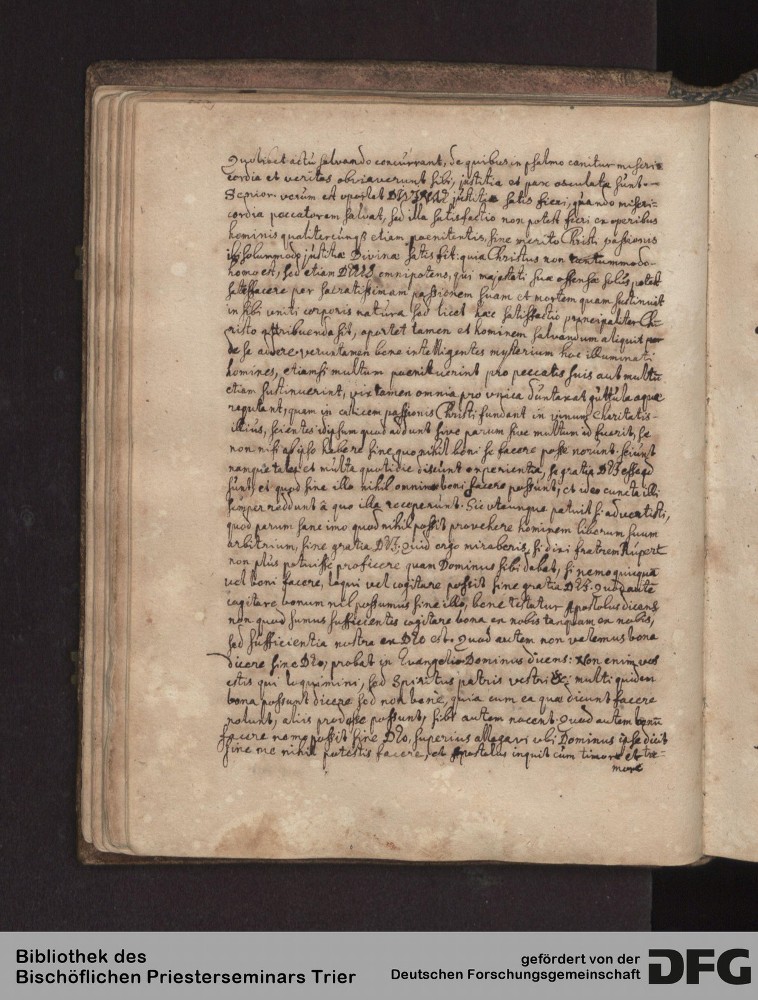 quolibet actu salvando concurrant, de quibus in psalmo canitur miseri=
cordia et veritas obviaverunt sibi, justitia et pax osculatæ sunt.
Senior. verum est oportet DIVINÆ justitiæ satis fieri, quando miseri=
cordia peccatorem salvat, sed illa satisfactio non potest fieri ex operibus
hominis qualitercunq3 etiam poenitentis, sine merito Christi passionis
ibi solummodo justitiæ Divinæ satis fit: quia Christus non tantummodo
homo est, sed etiam DEUS omnipotens, qui majestati suæ offensæ solus potest
satisfacere per sacratissimam passionem suam et mortem quam sustinuit
in sibi uniti corporis natura sed licet hæc satisfactio principaliter Ch=
risto attribuenda sit, oportet tamen et hominem salvandum aliquit per
de se addere, veruntamen bene intelligentes mysterium hoc illuminati
homines, etiamsi multum poenituerint pro peccatis suis aut multum
etiam sustinuerint, vix tamen omnia pro unica duntaxat guttula aquæ
reputant, quam in calicem passionis Christi fundant in vinum Charitatis
illius, scientes idipsum quod addunt sive parum sive multum id fuerit, se
non nisi ab ipso habere sine quo nihil boni se facere posse norunt. sciunt
namque tales et multa quotidie discunt experientia, se gratia DEI esse quod
sunt, et quod sine illa nihil omnino boni facere possunt, et ideo cuncta illi
semper reddunt à quo illa receperunt. Sic utcunque patuit si advertisti,
quod parum sane imo quod nihil possit provehere hominem liberum suum
arbitrium, sine gratia DEI. quid ergo miraberis, si dixi fratrem Rupert
non plus potuisse proficere quam Dominus sibi dabat, si nemo quicquam
vel boni facere, loqui vel cogitare possit sine gratia DEI. quod autem
cogitare bonum nil possumus sine illo, bene testatur Apostolus dicens
non quod sumus sufficientes cogitare bona ex nobis tanquam ex nobis,
sed sufficientia nostra ex DEO est. Quod autem non valemus bona
dicere sine DEO, probat in Evangelio Dominus dicens: Non enim vos
estis qui loquimini, sed Spiritus patris vestri &c: multi quidem
bona possunt dicere sed non bene, quia cum ea quæ dicunt facere
nolunt, aliis prodesse possunt, sibi autem nocent. Quod autem bonum
facere nemo possit sine DEO, superius allegavi ubi Dominus ipse dicit
sine me nihil potestis facere, et Apostolus inquit cum timore et tre=
more
Bibliothek des
Bischöflichen Priesterseminars Trier
gefördert von der
Deutschen Forschungsgemeinschaft
DFG